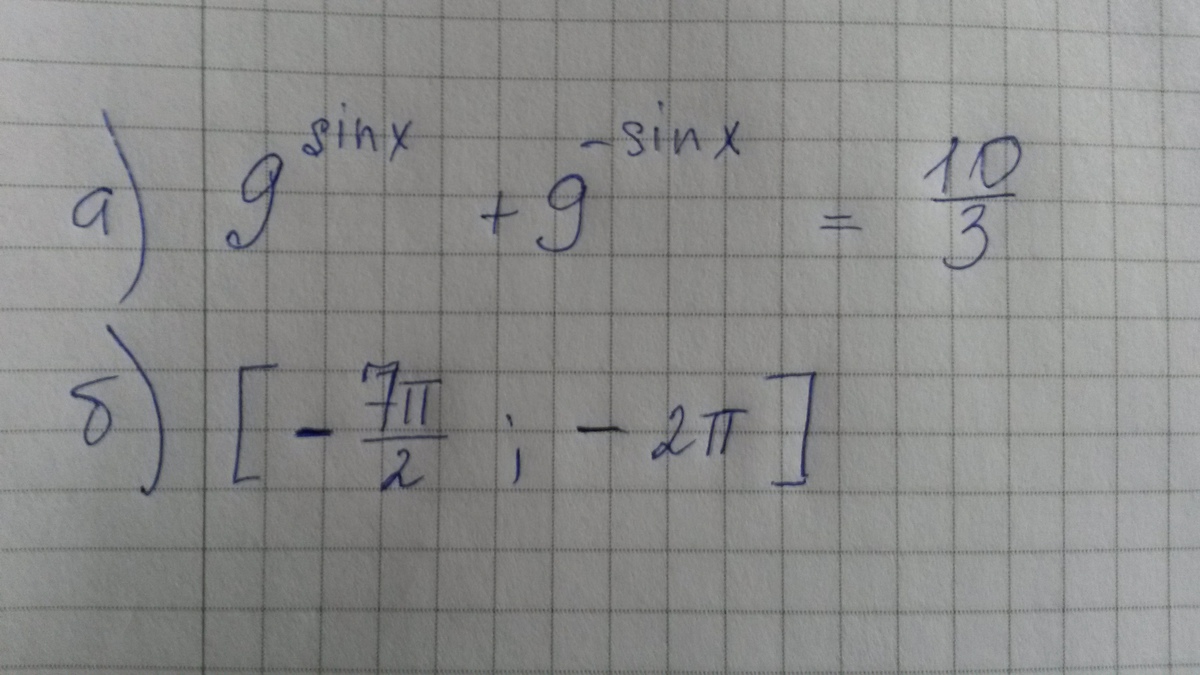 а) 9^(sinx) + 9^(-sinx) = 10/3
б) [-7π/2 ; -2π]